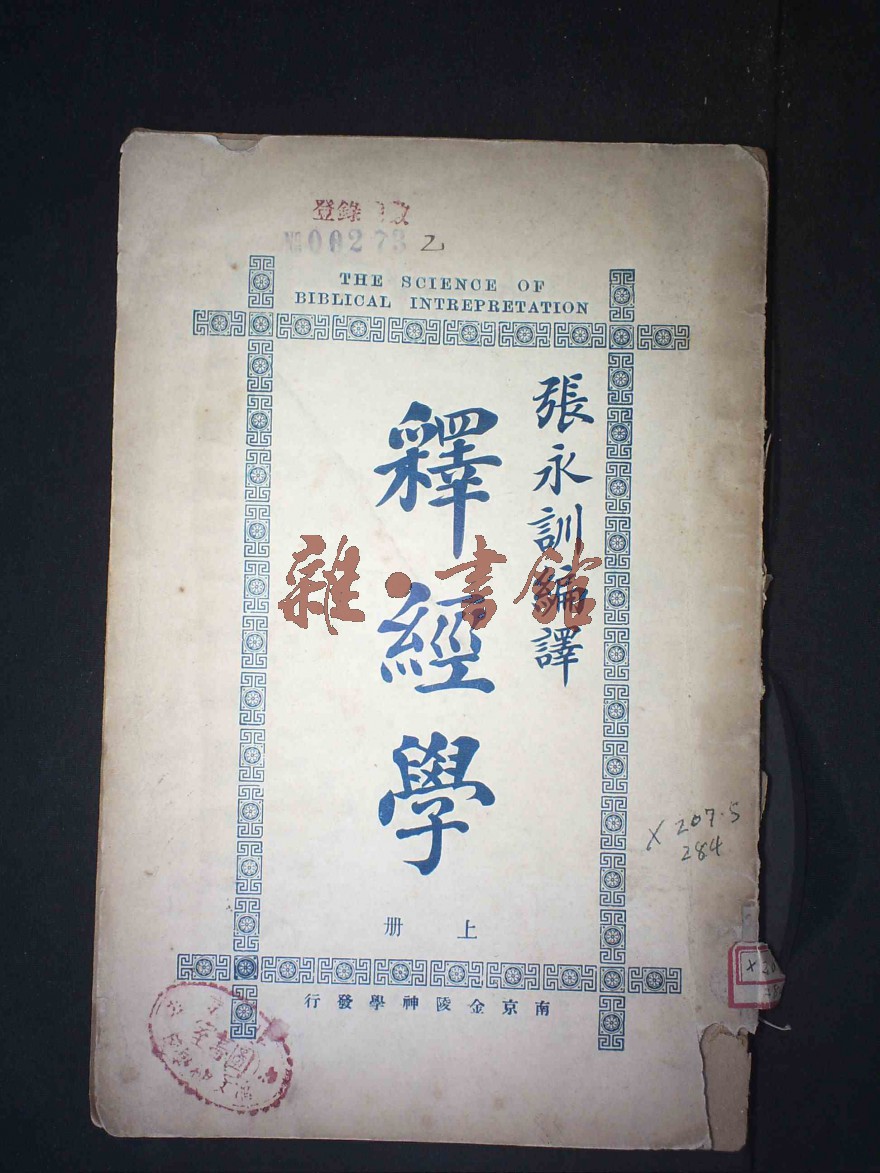 登錄
No 00273 乙
THE SCIENCE OF
BIBLICAL INTREPRETATION
張永訓編譯
釋經學
雜·書館
上册
X 207.5
284
南京金陵神學發行